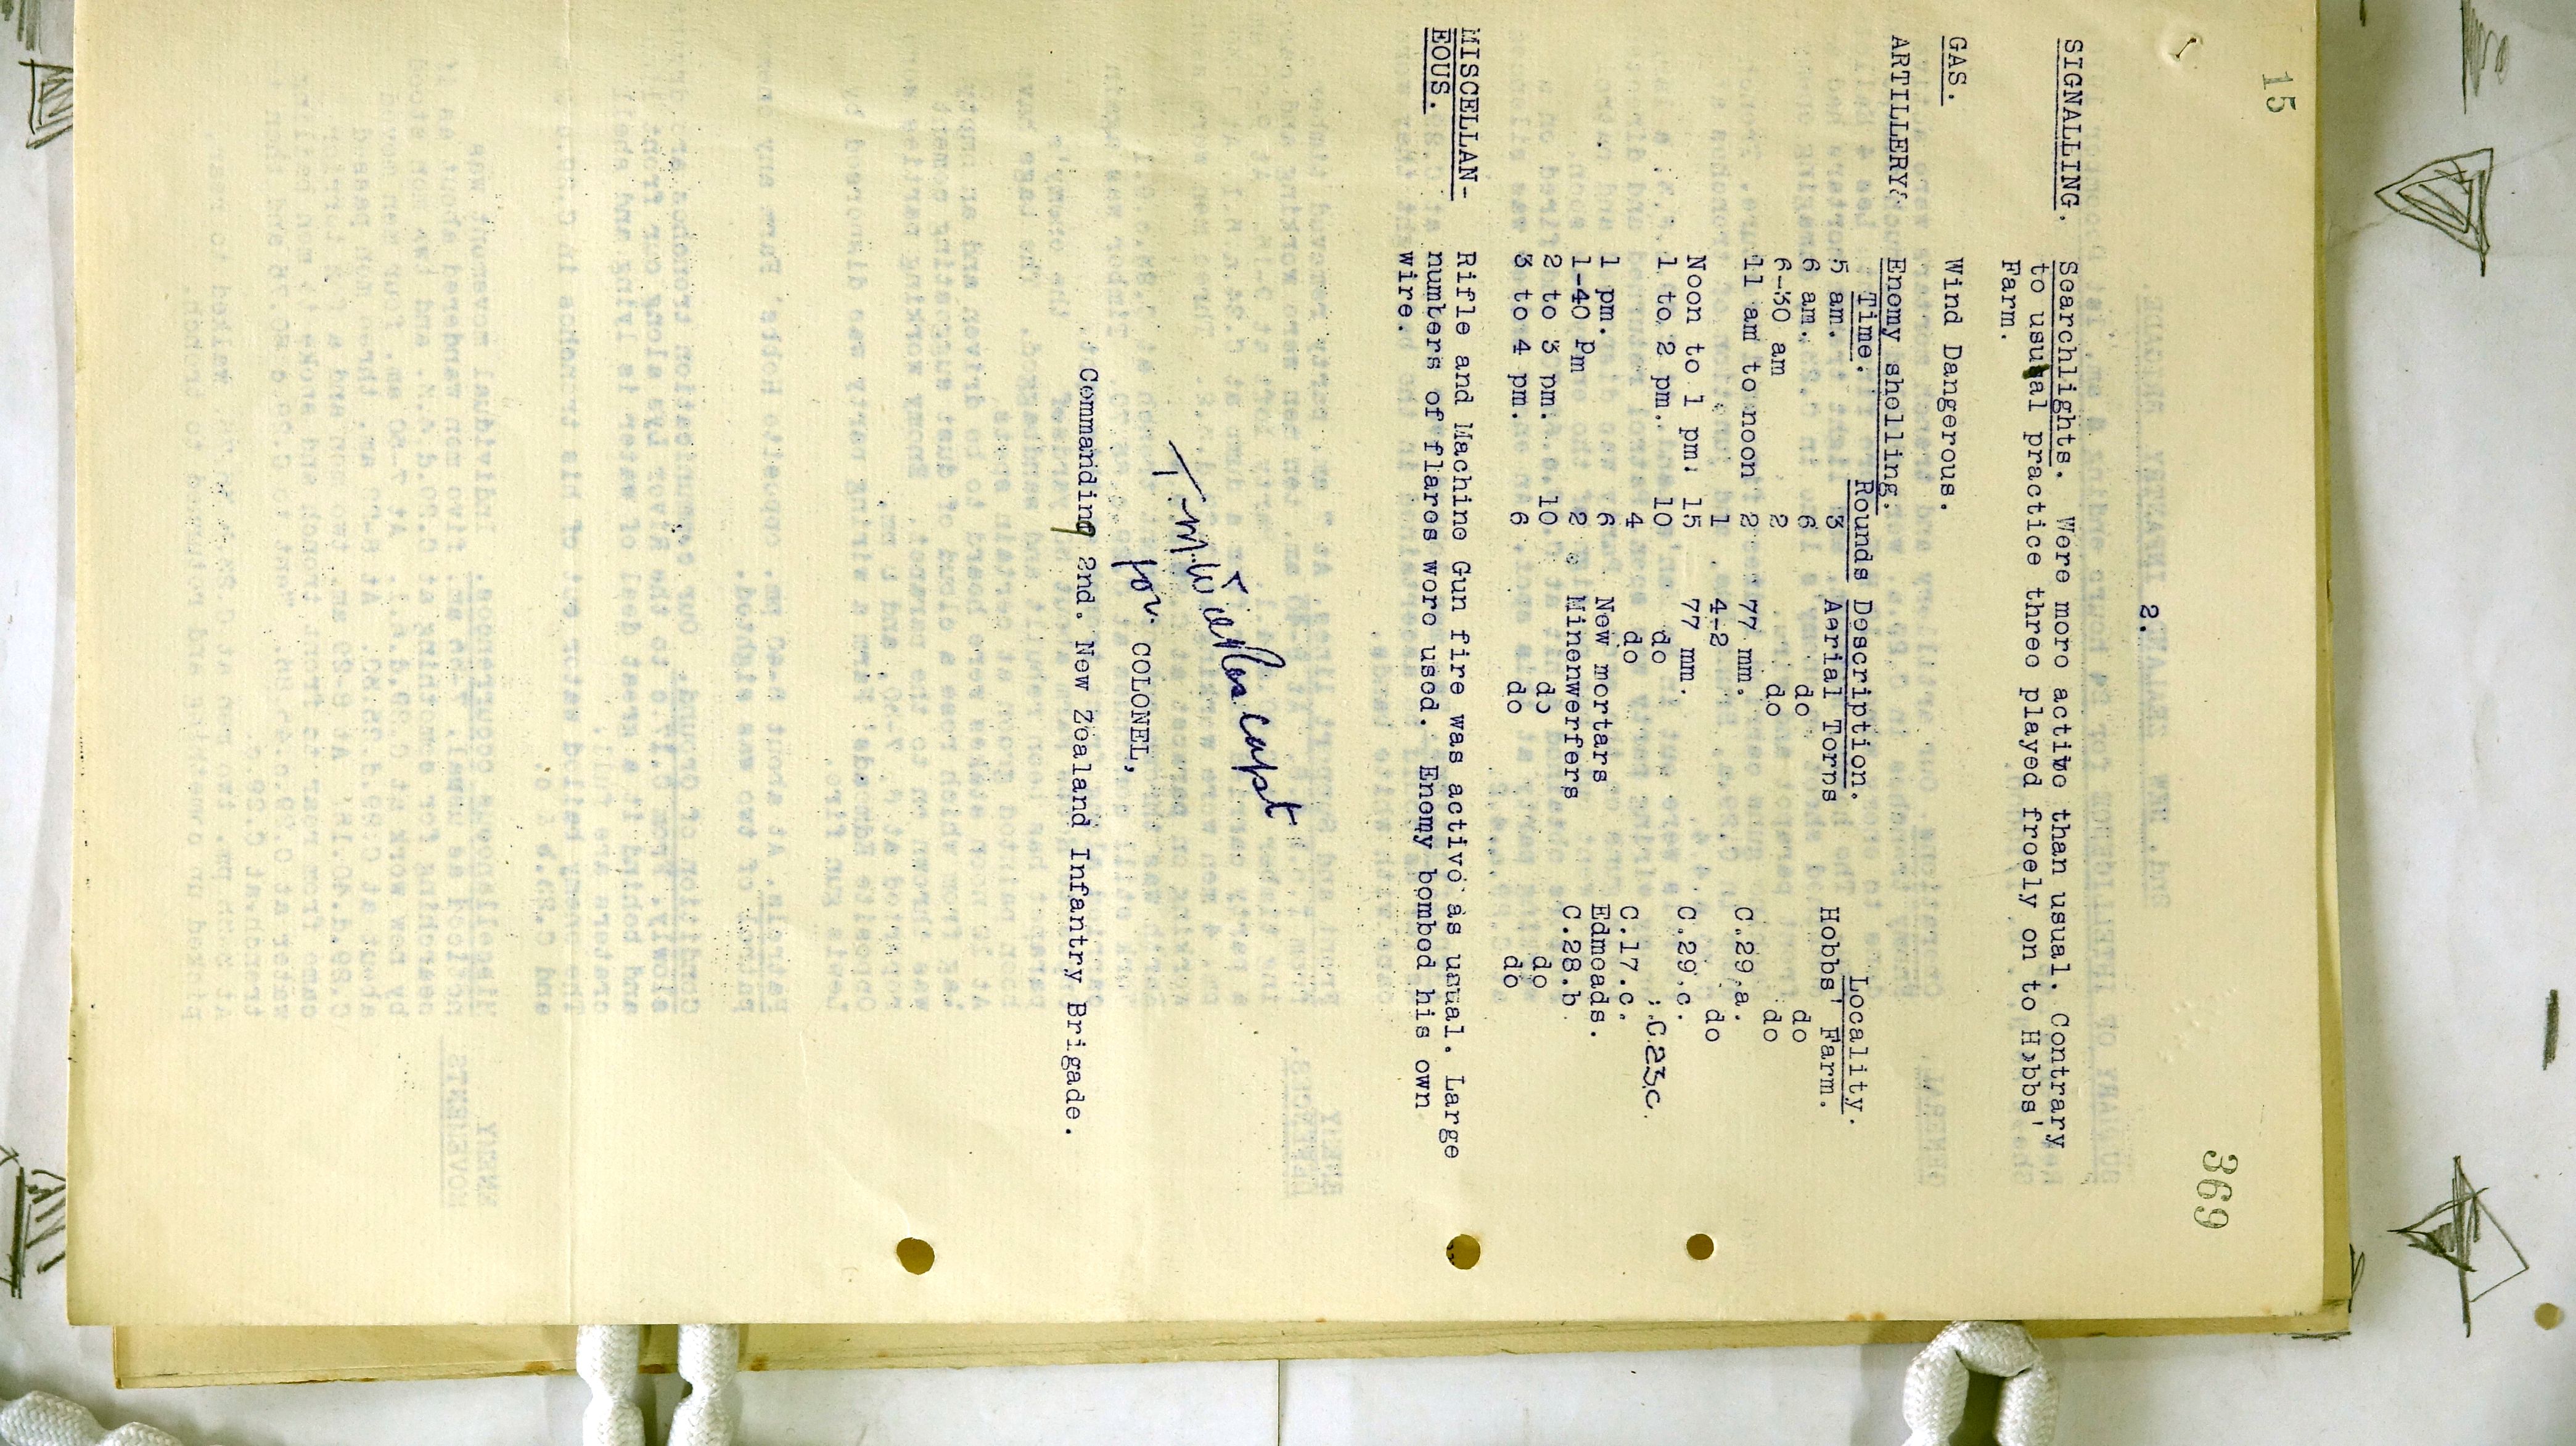 15
369
2.
SIGNALLING. Searchlights. Were more active than usual. Contrary
to usual practice three played freely on to Hobbs'
Farm.
GAS. Wind Dangerous.
ARTILLERY. Enemy shelling.
Time. Rounds Description. Locality.
5 am. 3 Aerial Torns Hobbs' Farm.
6 am. 6 do do
6-30 am 2 do do
11 am to noon 2 77 mm. C.29.a.
1 4-2 do
Noon to 1 pm: 15 77 mm. C.29.c.
1 to 2 pm. 10 do C.23.c.
4 do C.17.c.
1 pm. 6 New mortars Edmeads.
1-40 pm 2 Minenwerfers C.28.b
2 to 3 pm. 10 do do
3 to 4 pm. 6 do do
MISCELLAN-
EOUS. Rifle and Machine Gun fire was active as usual. Large
numbers of flares were used. Enemy bombed his own
wire.
Capt
for COLONEL,
Commanding 2nd. New Zealand Infantry Brigade.